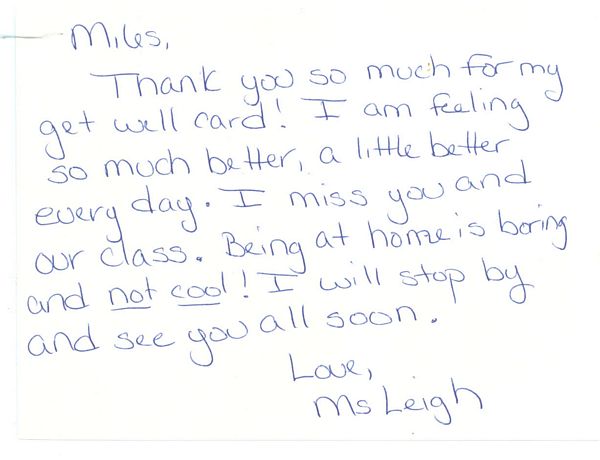 Miles,
Thank you so much for my
get well card! I am feeling
so much better, a little better
every day. I miss you and
our class. Being at home is boring
and not cool! I will stop by
and see you all soon.
Love,
Ms Leigh